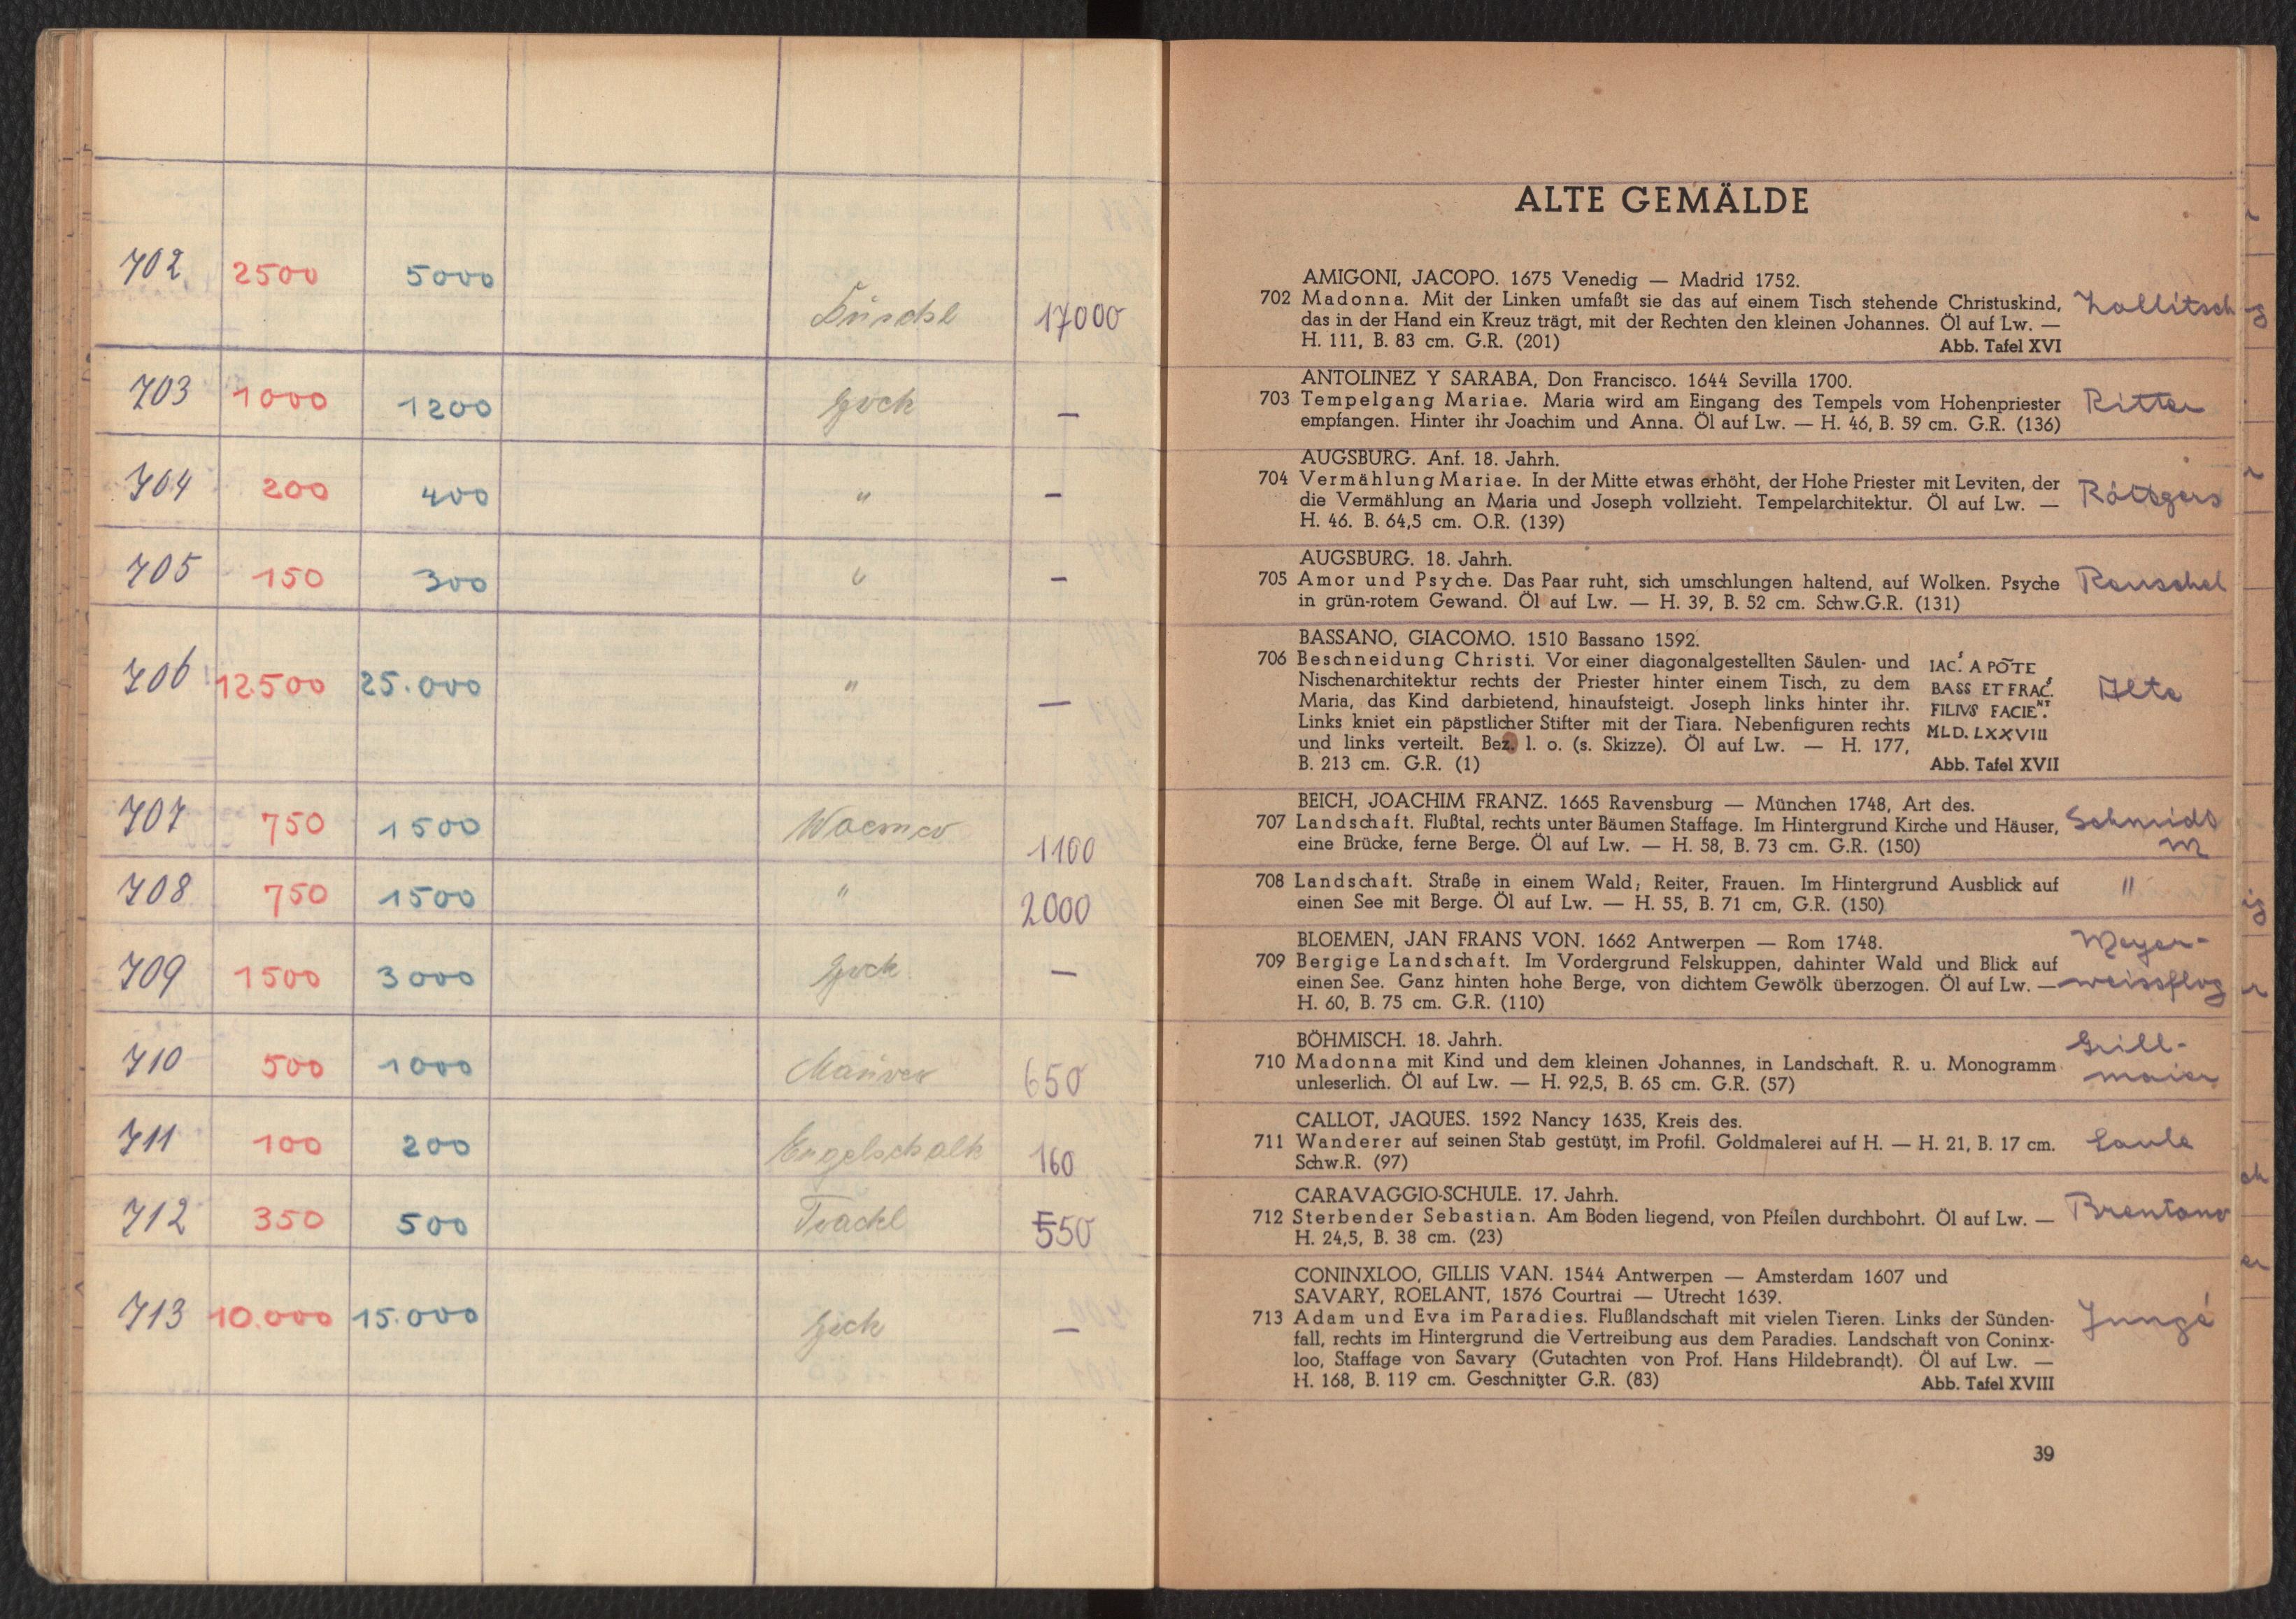 702 2500 5000 17000
703 1000 1200 —
704 200 400 " —
705 150 300 " —
706 12500 25.000 " —
707 750 1500 1100
708 750 1500 " 2000
709 1500 3000 —
710 500 1000 650
711 100 200 Engelschalk 160
712 350 500 550
713 10.000 15.000 —
ALTE GEMÄLDE
AMIGONI, JACOPO. 1675 Venedig — Madrid 1752.
702 Madonna. Mit der Linken umfaßt sie das auf einem Tisch stehende Christuskind, Zollitsch
das in der Hand ein Kreuz trägt, mit der Rechten den kleinen Johannes. Öl auf Lw. —
H. 111, B. 83 cm. G.R. (201) Abb. Tafel XVI
ANTOLINEZ Y SARABA, Don Francisco. 1644 Sevilla 1700.
703 Tempelgang Mariae. Maria wird am Eingang des Tempels vom Hohenpriester Ritter
empfangen. Hinter ihr Joachim und Anna. Öl auf Lw. — H. 46, B. 59 cm. G.R. (136)
AUGSBURG. Anf. 18. Jahrh.
704 Vermählung Mariae. In der Mitte etwas erhöht, der Hohe Priester mit Leviten, der
die Vermählung an Maria und Joseph vollzieht. Tempelarchitektur. Öl auf Lw. — Röttgers
H. 46. B. 64,5 cm. O.R. (139)
AUGSBURG. 18. Jahrh.
705 Amor und Psyche. Das Paar ruht, sich umschlungen haltend, auf Wolken. Psyche
in grün-rotem Gewand. Öl auf Lw. — H. 39, B. 52 cm. Schw.G.R. (131)
BASSANO, GIACOMO. 1510 Bassano 1592.
706 Beschneidung Christi. Vor einer diagonalgestellten Säulen- und
Nischenarchitektur rechts der Priester hinter einem Tisch, zu dem
Maria, das Kind darbietend, hinaufsteigt. Joseph links hinter ihr.
Links kniet ein päpstlicher Stifter mit der Tiara. Nebenfiguren rechts
und links verteilt. Bez. l. o. (s. Skizze). Öl auf Lw. — H. 177,
B. 213 cm. G.R. (1)
IAC.S A PŌTE
BASS ET FRAC.S
FILIVS FACIE.NT
MLD. LXXVIII
Abb. Tafel XVII
BEICH, JOACHIM FRANZ. 1665 Ravensburg — München 1748, Art des.
707 Landschaft. Flußtal, rechts unter Bäumen Staffage. Im Hintergrund Kirche und Häuser, Schmidt
eine Brücke, ferne Berge. Öl auf Lw. — H. 58, B. 73 cm. G.R. (150) M
708 Landschaft. Straße in einem Wald; Reiter, Frauen. Im Hintergrund Ausblick auf "
einen See mit Berge. Öl auf Lw. — H. 55, B. 71 cm, G.R. (150)
BLOEMEN, JAN FRANS VON. 1662 Antwerpen — Rom 1748. Meyer-
709 Bergige Landschaft. Im Vordergrund Felskuppen, dahinter Wald und Blick auf
einen See. Ganz hinten hohe Berge, von dichtem Gewölk überzogen. Öl auf Lw. — weissflog
H. 60, B. 75 cm. G.R. (110)
BÖHMISCH. 18. Jahrh. Grill-
710 Madonna mit Kind und dem kleinen Johannes, in Landschaft. R. u. Monogramm
unleserlich. Öl auf Lw. — H. 92,5, B. 65 cm. G.R. (57) maier
CALLOT, JAQUES. 1592 Nancy 1635, Kreis des.
711 Wanderer auf seinen Stab gestützt, im Profil. Goldmalerei auf H. — H. 21, B. 17 cm. Laule
Schw.R. (97)
CARAVAGGIO-SCHULE. 17. Jahrh.
712 Sterbender Sebastian. Am Boden liegend, von Pfeilen durchbohrt. Öl auf Lw. — Brentano
H. 24,5, B. 38 cm. (23)
CONINXLOO, GILLIS VAN. 1544 Antwerpen — Amsterdam 1607 und
SAVARY, ROELANT, 1576 Courtrai — Utrecht 1639.
713 Adam und Eva im Paradies. Flußlandschaft mit vielen Tieren. Links der Sünden- Jungé
fall, rechts im Hintergrund die Vertreibung aus dem Paradies. Landschaft von Coninx-
loo, Staffage von Savary (Gutachten von Prof. Hans Hildebrandt). Öl auf Lw. —
H. 168, B. 119 cm. Geschnitzter G.R. (83) Abb. Tafel XVIII
39